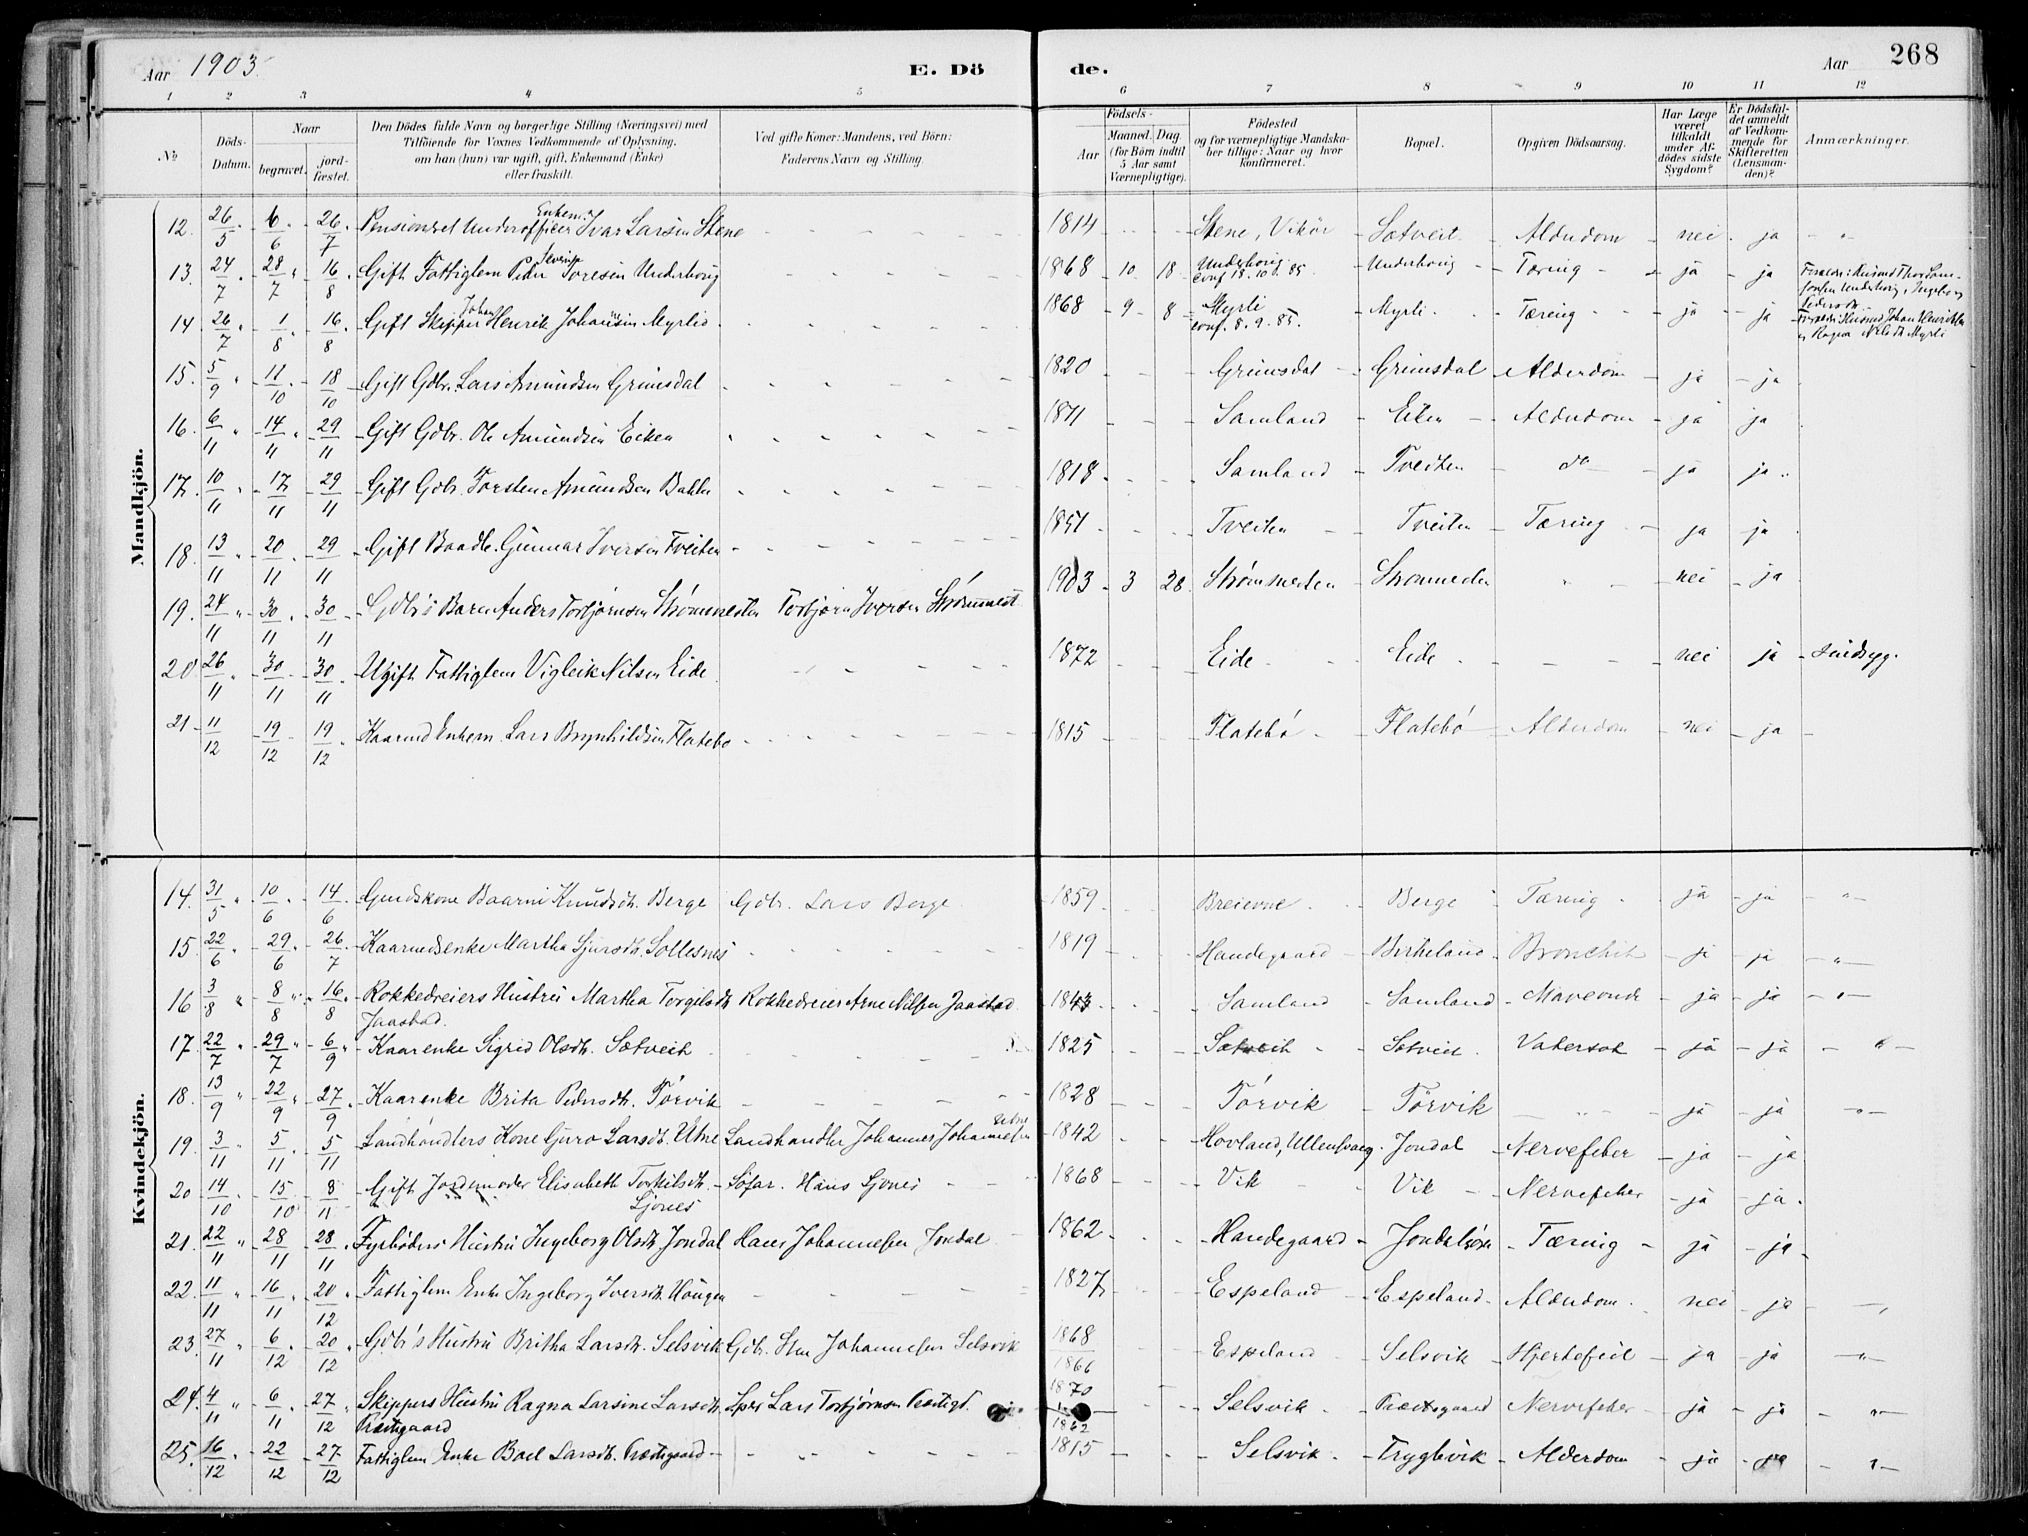 Aar 1903. E. Dö de. Aar 268
1 2 3 4 5 6 7 8 9 10 11 12
№ Döds-Datum. Naar begravet. jordfæstet. Den Dödes fulde Navn og borgerlige Stilling (Næringsvei) med Tilföiende for Voxnes Vedkommende af Oplysning, om han (hun) var ugift, gift, Enkemand (Enke) eller fraskilt. Ved gifte Koner: Mandens, ved Börn: Faderens Navn og Stilling. Födsels- Aar Maaned. Dag. (for Börn indtil 5 Aar samt Værnepligtige). Födested og for værnepligtige Mandskaber tillige: Naar og hvor konfirmeret. Bopæl. Opgiven Dödsaarsag. Har Læge været tilkaldt under Afdödes sidste Sygdom? Er Dödsfaldet anmeldt af Vedkommende for Skifteretten (Lensmanden)? Anmærkninger.
Mandkjön.
12. 26/5 6/6 26/7 Pensioneret Underofficer Enkem. Ivar Larsen Stene 1814 Stene, Vikör Sætveit Alderdom nei ja
13. 24/7 28/7 16/8 Gift Fattiglem Peder Toresen Underhoug 1868 10 18 Underhoug conf. 18.10.85 Underhoug Tæring ja ja
14 26/7 1/8 16/8 Gift Skipper Johan Henrik Johansen Myrlid 1868 9 8 Myrli conf. 8.9.85. Myrli Tæring ja ja
15. 5/9 11/10 18/10 Gift Gdbr. Lars Amundsen Grimsdal 1820 Grimsdal Grimsdal Alderdom ja ja
16. 6/11 14/11 29/11 Gift Gdbr. Ole Amundsen Eiken Samland Eiken Alderdom ja ja
17. 10/11 17/11 29/11 Gift Gdbr. Torsten Amundsen Bakke 1818 Samland Tveiten do ja ja
18. 13/11 20/11 29/11 Gift Baadb. Gunnar Iversen Tveiten 1851 Tveiten Tveiten Tæring ja ja
19. 24/11 30/11 30/11 Gdbr's Barn Anders Torbjørnsen Strømmesten Torbjørn Iversen Strømmest 1903 3 28 nei ja
20 26/11 30/11 30/11 Ugift Fattiglem Vigleik Nilsen Eide 1872 Eide Eide nei ja sindsyg.
21 11/12 19/12 19/12 Kaarmd Enkem. Lars Brynhildsen Flatebø 1815 Flatebø Flatebø Alderdom nei ja
Kvindekjön.
14. 31/5 10/6 14/6 Gaardskone Baarni Knudsdt. Berge Gdbr. Lars Berge 1859 Breievne Berge Tæring ja ja
15 22/6 29/6 26/7 Kaarmdsenke Martha Sjursdt. Sollesnes 1819 Handegaard Birkeland Bronchit ja ja
16 3/8 8/8 16/8 Rokkedreiers Hustru Martha Torgilsdt. Rokkedreier Arne Nilsen Jaastad 1843 Samland Samland Mavevonde ja ja
Jaastad.
17. 22/7 29/7 6/9 Kaarenke Sigrid Olsdt. Sætveit 1825 Sætveit Sætveit Vatersot ja ja
18. 13/9 22/9 27/9 Kaarenke Brita Pedersdt. Törvik 1828 Törvik Törvik ja ja
19. 3/11 5/11 5/11 Landhandlers Kone Guro Larsdt. Utne Landhandler Johannes Johannesen Utne 1842 Hovland, Ullensvang Jondal Nervefeber ja ja
20 14/10 15/10 8/11 Gift Jordemoder Elisabeth Torkilsdt. Söfar. Hans Sjones 1868 Vik Vik Nervefeber ja ja.
Sjones
21. 22/11 28/11 28/11 Fyrbøders Hustru Ingeborg Olsdt. Jondal Hans Johannesen Jondal 1862 Handegaard Jondalsøen Tæring ja ja
22. 11/11 16/11 20/12 Fattiglem Enke Ingeborg Iversdt. Haugen 1827 Espeland Espeland Alderdom nei ja
23. 27/11 6/12 20/12 Gdbr's Hustru Britha Larsdt. Selsvik Gdbr. Johannesen Selsvik 1868 1866 Espeland Selsvik Hjertefeil ja ja
24. 4/11 6/11 27/12 Skippers Hustru Ragna Larsine Larsdt. Sper Lars Torbjørnsen Præstegd. 1870 1862 Selsvik Præstegaard Nervefeber ja ja
Præstgaard
25. 16/12 22/12 27/12 Fattiglem Enke Boel Larsdt. Præstgaard 1815 Selsvik Trygkvik Alderdom ja ja